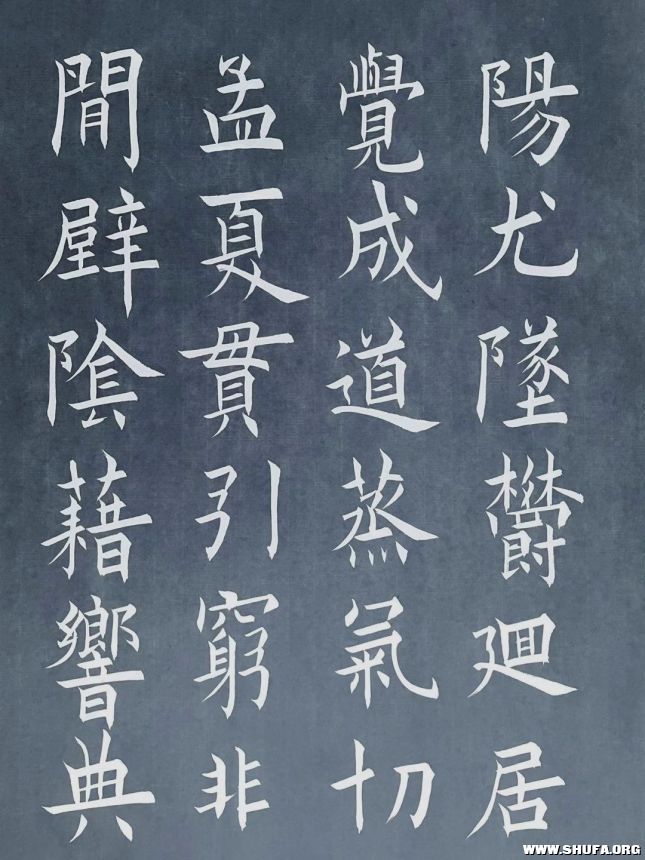 陽尤墜欝廻居
覺成道蒸氣切
孟夏貫引窮非
閒壁陰藉響典
WWW.SHUFA.ORG